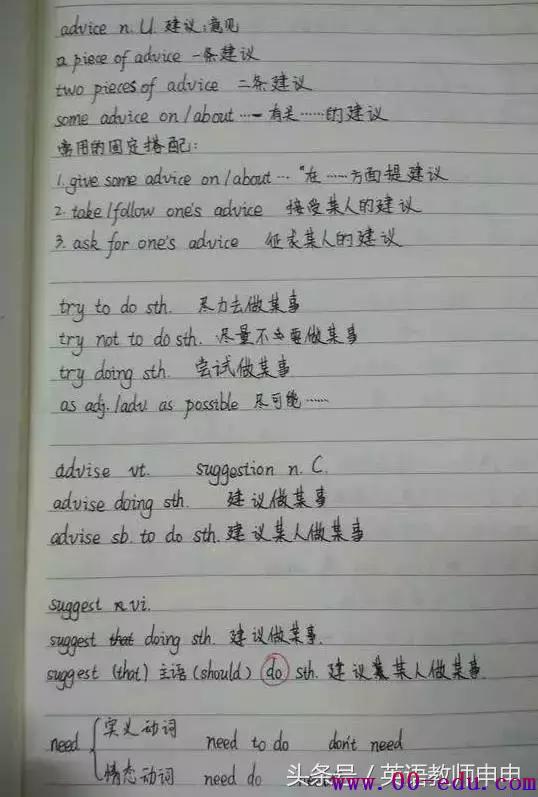 advice n. U. 建议;意见
a piece of advice 一条建议
two pieces of advice 二条建议
some advice on / about …… 有关……的建议
常用的固定搭配:
1. give some advice on / about … "在……方面提建议
2. take / follow one's advice 接受某人的建议
3. ask for one's advice 征求某人的建议
try to do sth. 尽力去做某事
try not to do sth. 尽量不要做某事
try doing sth. 尝试做某事
as adj. / adv as possible 尽可能……
advise vt. suggestion n. C.
advise doing sth. 建议做某事
advise sb. to do sth. 建议某人做某事
suggest vi.
suggest that doing sth. 建议做某事.
suggest (that) 主语 (should) do sth. 建议某人做某事.
need { 实义动词 need to do don't need
情态动词 need do
头条号 / 英语教师申申
www.00-edu.com